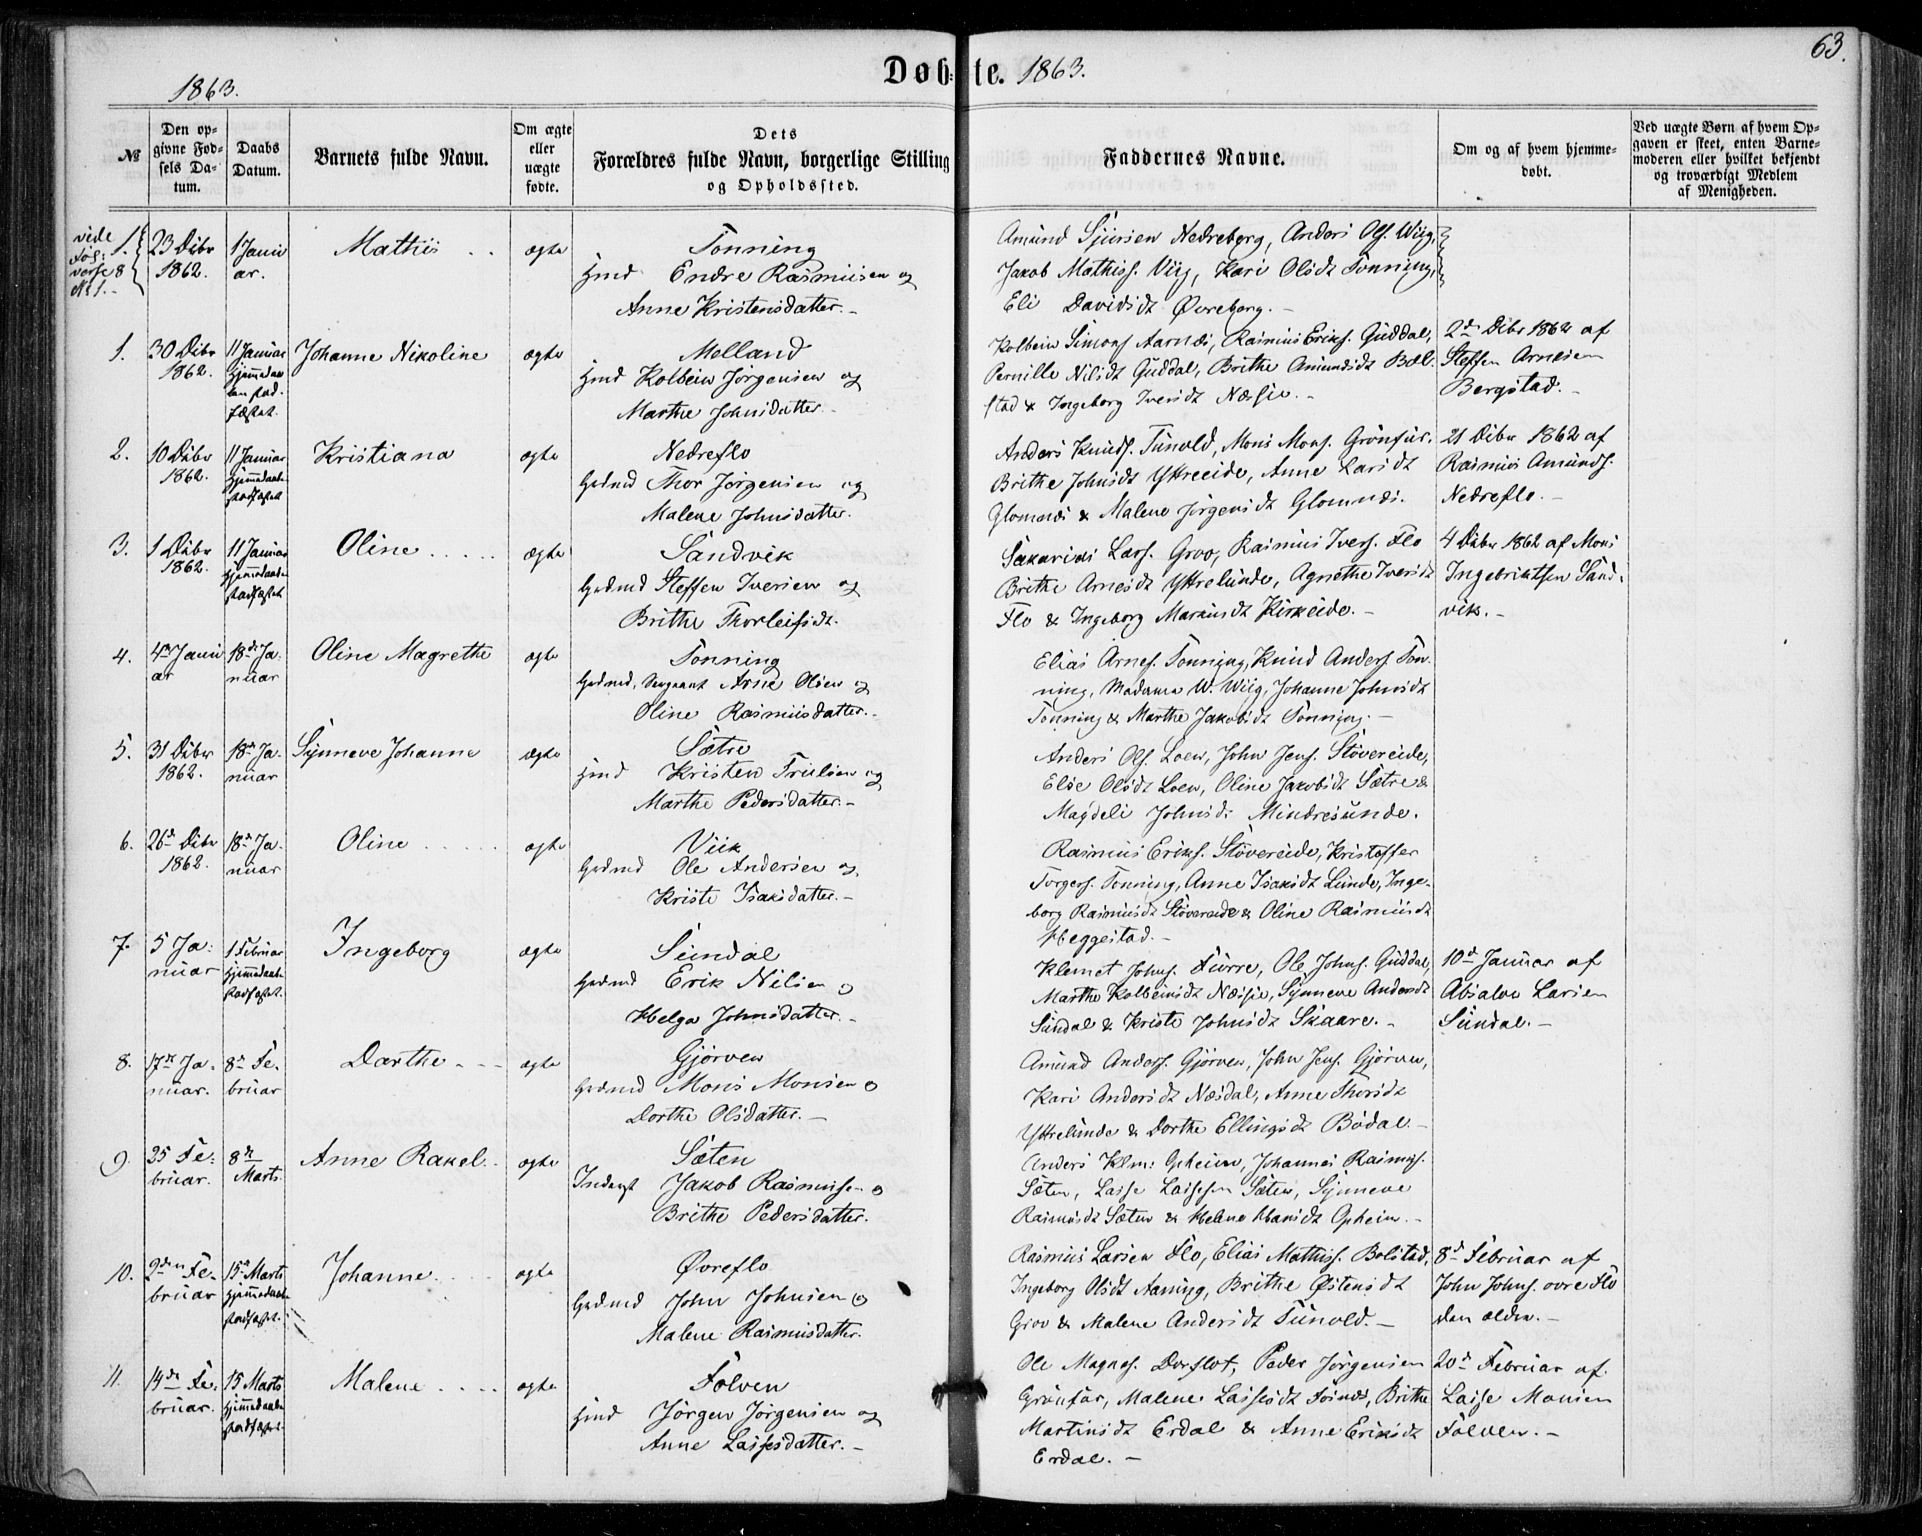 63.
1863.
Døbte. 1863.
№
Den opgivne Fødsels Datum.
Daabs Datum.
Barnets fulde Navn.
Om ægte eller uægte fødte.
Dets
Forældres fulde Navn, borgerlige Stilling
og Opholdssted.
Faddernes Navne.
Om og af hvem hjemmedøbt.
Ved uægte Børn af hvem Opgaven er skeet, enten Barnemoderen eller hvilket bekjendt og troværdigt Medlem af Menigheden.
vide
1. 23 Dibr 1862. 1 Januar. Mathis ægte
Tonning
Hmd Endre Rasmusen og
Anne Kristensdatter.
Amund Sjursen Nedreberg, Anders Ols. Wiig,
Jakob Mathiss. Viig, Kari Olsdt Tonning,
Eli Davidsdt Øvreberg.
1. 30 Dibr 1862. 11 Januar Hjemmedaaben stadfæstet. Johanne Nikoline ægte
Melland
Hmd Kolbein Jørgensen og
Marthe Johnsdatter
Kolbein Simons Aarnes, Rasmus Eriks. Guddal,
Pernille Nilsdt Guddal, Brithe Amundsdt Bol-
stad & Ingeborg Iversdt Næsje.
2d Dibr 1862 af
Steffen Arnesen
Bergstad.
2. 10 Dibr 1862. 11 Januar Hjemmedaab stadfæstet Kristiana ægte
Nedreflo
Gdmd Thor Jørgensen og
Malene Johnsdatter.
Anders Knuds. Tunold, Mons Mons. Grönfur.
Brithe Johnsdt Yttreeide, Anne Larsdt
Glomnes & Malene Jørgensdt Glomnes.
21 Dibr 1862 af
Rasmus Amunds.
Nedreflo.
3. 1 Dibr 1862. 11 Januar Hjemmedaab stadfæstet Oline ægte
Sandvik
Gdmd Steffen Iversen og
Brithe Thorleifsdt.
Sakarias Lars. Grov, Rasmus Ivers. Flo
Brithe Arnesdt Yttrelunde, Agnethe Iversdt
Flo & Ingeborg Markusdt Kirkeide.
4 Dibr 1862 af Mons
Ingebriktsen Sand-
vik.
4. 4de Januar 18de Januar Oline Magrethe ægte
Tonning
Gdmd, Sergeant Arne Olsen og
Oline Rasmusdatter.
Elias Arnes. Tonning, Knud Anders. Ton-
ning, Madama W. Wiig, Johanne Johnsdt
Tonning & Marthe Jakobsdt Tonning.
5. 31 Dibr 1862. 18de Januar Synneve Johanne ægte
Sætre
Hmd Kristen Trulsen og
Marthe Pedersdatter.
Anders Ols. Loen, John Jens. Stövereide,
Else Olsdt Loen, Oline Jakobsdt Sætre &
Magdeli Johnsd: Mindresunde.
6. 26de Dibr 1862. 18de Januar Oline ægte
Viik
Gdmd Ole Andersen og
Kriste Isaksdatter.
Rasmus Eriks. Stövereide, Kristoffer
Torgers. Tonning, Anne Isaksdt Lunde, Inge-
borg Rasmusdt Stövereide & Oline Rasmusdt
Heggestad.
7. 5 Januar 1 Februar Hjemmedaab stadfæstet. Ingeborg ægte
Sundal
Gdmd Erik Nilsen &
Helga Johnsdatter.
Klemet Johns. Furre, Ole Johns. Guddal,
Marthe Kolbeinsdt Næsje, Synneve Andersdt
Sundal & Kriste Johnsdt Skaare.
10de Januar af
Absalon Larsen
Sundal.
8. 17de Januar. 8de Februar Dorthe ægte
Gjörven
Gdmd Mons Monsen &
Dorthe Olsdatter.
Amund Anders. Gjörven, John Jens. Gjörven,
Kari Andersdt Næsdal, Anne Thorsdt
Yttrelunde & Dorthe Ellingsdt Bödal.
9. 25 Februar. 8de Marts. Anne Rakel ægte
Sæten
Inderst Jakob Rasmusen &
Brithe Pedersdatter.
Anders Klm: Opheim, Johannes Rasmus.
Sæten, Lasse Lassesen Sæten, Synneve
Rasmusdt Sæten & Helene Hansdt Opheim.
10. 9den Februar 15de Marts Hjemmedaab stadfæstet. Johanne ægte
Øvreflo
Gdmd John Johnsen &
Malene Rasmusdatter.
Rasmus Larsen Flo, Elias Mathiss. Bolstad,
Ingeborg Olsdt Aaning, Brithe Østensdt
Grov & Malene Andersdt Tunold.
8d Februar af
John Johns. ovre Flo
den ældre.
11. 14de Februar. 15 Marts Hjemmedaab stadfæstet. Malene ægte
Folven
Hmd Jörgen Jørgensen og
Anne Lassesdatter.
Ole Magnes. Dorflot, Peder Jörgensen
Grönfur, Malene Lassesdt Fosnes, Brithe
Martinsdt Erdal & Anne Eriksdt
Erdal.
20d Februar af
Lasse Monsen
Folven.